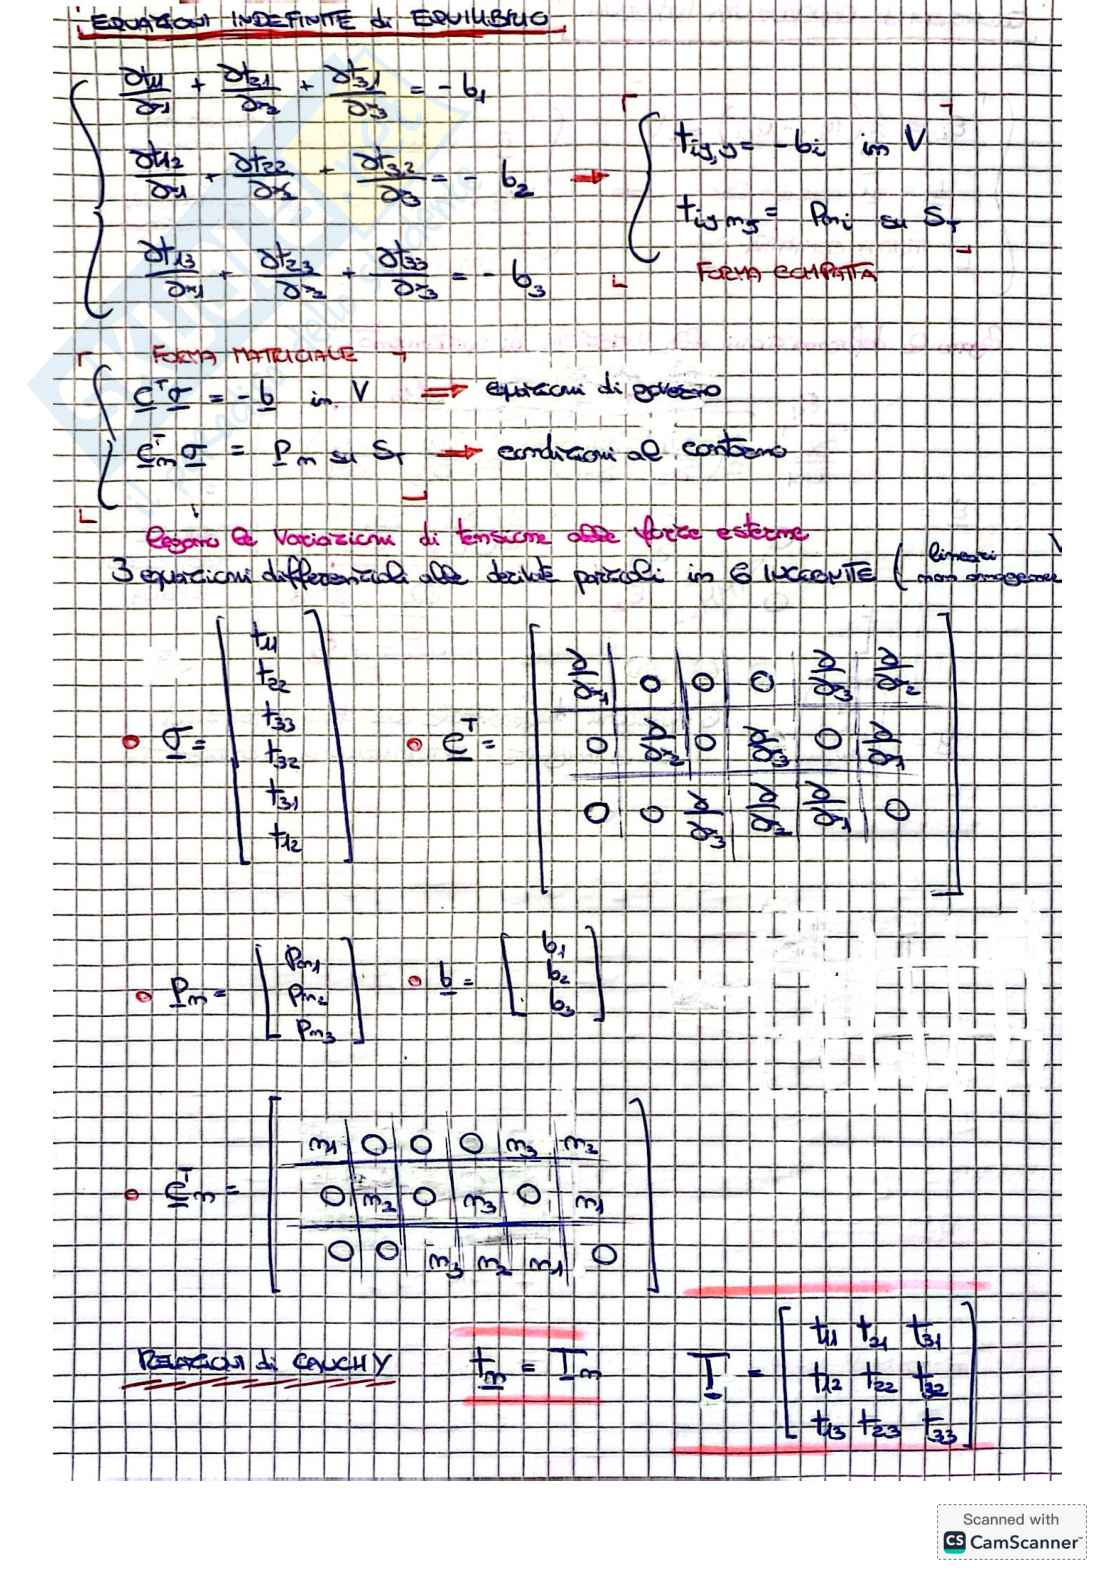 EQUAZIONI INDEFINITE di EQUILIBRIO
∂t11/∂x1 + ∂t21/∂x2 + ∂t31/∂x3 = - b1
∂t12/∂x1 + ∂t22/∂x2 + ∂t32/∂x3 = - b2
∂t13/∂x1 + ∂t23/∂x2 + ∂t33/∂x3 = - b3
tij,j = - bi in V
tij nj = pni su ST
FORMA COMPATTA
FORMA MATRICIALE
C^T σ = - b in V ⇒ equazioni di governo
C^T n σ = Pn su ST → condizioni al contorno
legano le variazioni di tensione alle forze esterne
3 equazioni differenziali alle derivate parziali in 6 INCOGNITE ( lineari
non omogenee
• σ = [ t11 t22 t33 t32 t31 t12 ]
• C^T =
∂/∂x1 0 0 0 ∂/∂x3 ∂/∂x2
0 ∂/∂x2 0 ∂/∂x3 0 ∂/∂x1
0 0 ∂/∂x3 ∂/∂x2 ∂/∂x1 0
• Pn = [ Pn1 Pn2 Pn3 ] • b = [ b1 b2 b3 ]
• C^T n =
n1 0 0 0 n3 n2
0 n2 0 n3 0 n1
0 0 n3 n2 n1 0
RELAZIONI di CAUCHY tn = Tn T =
t11 t21 t31
t12 t22 t32
t13 t23 t33
Scanned with
CS CamScanner